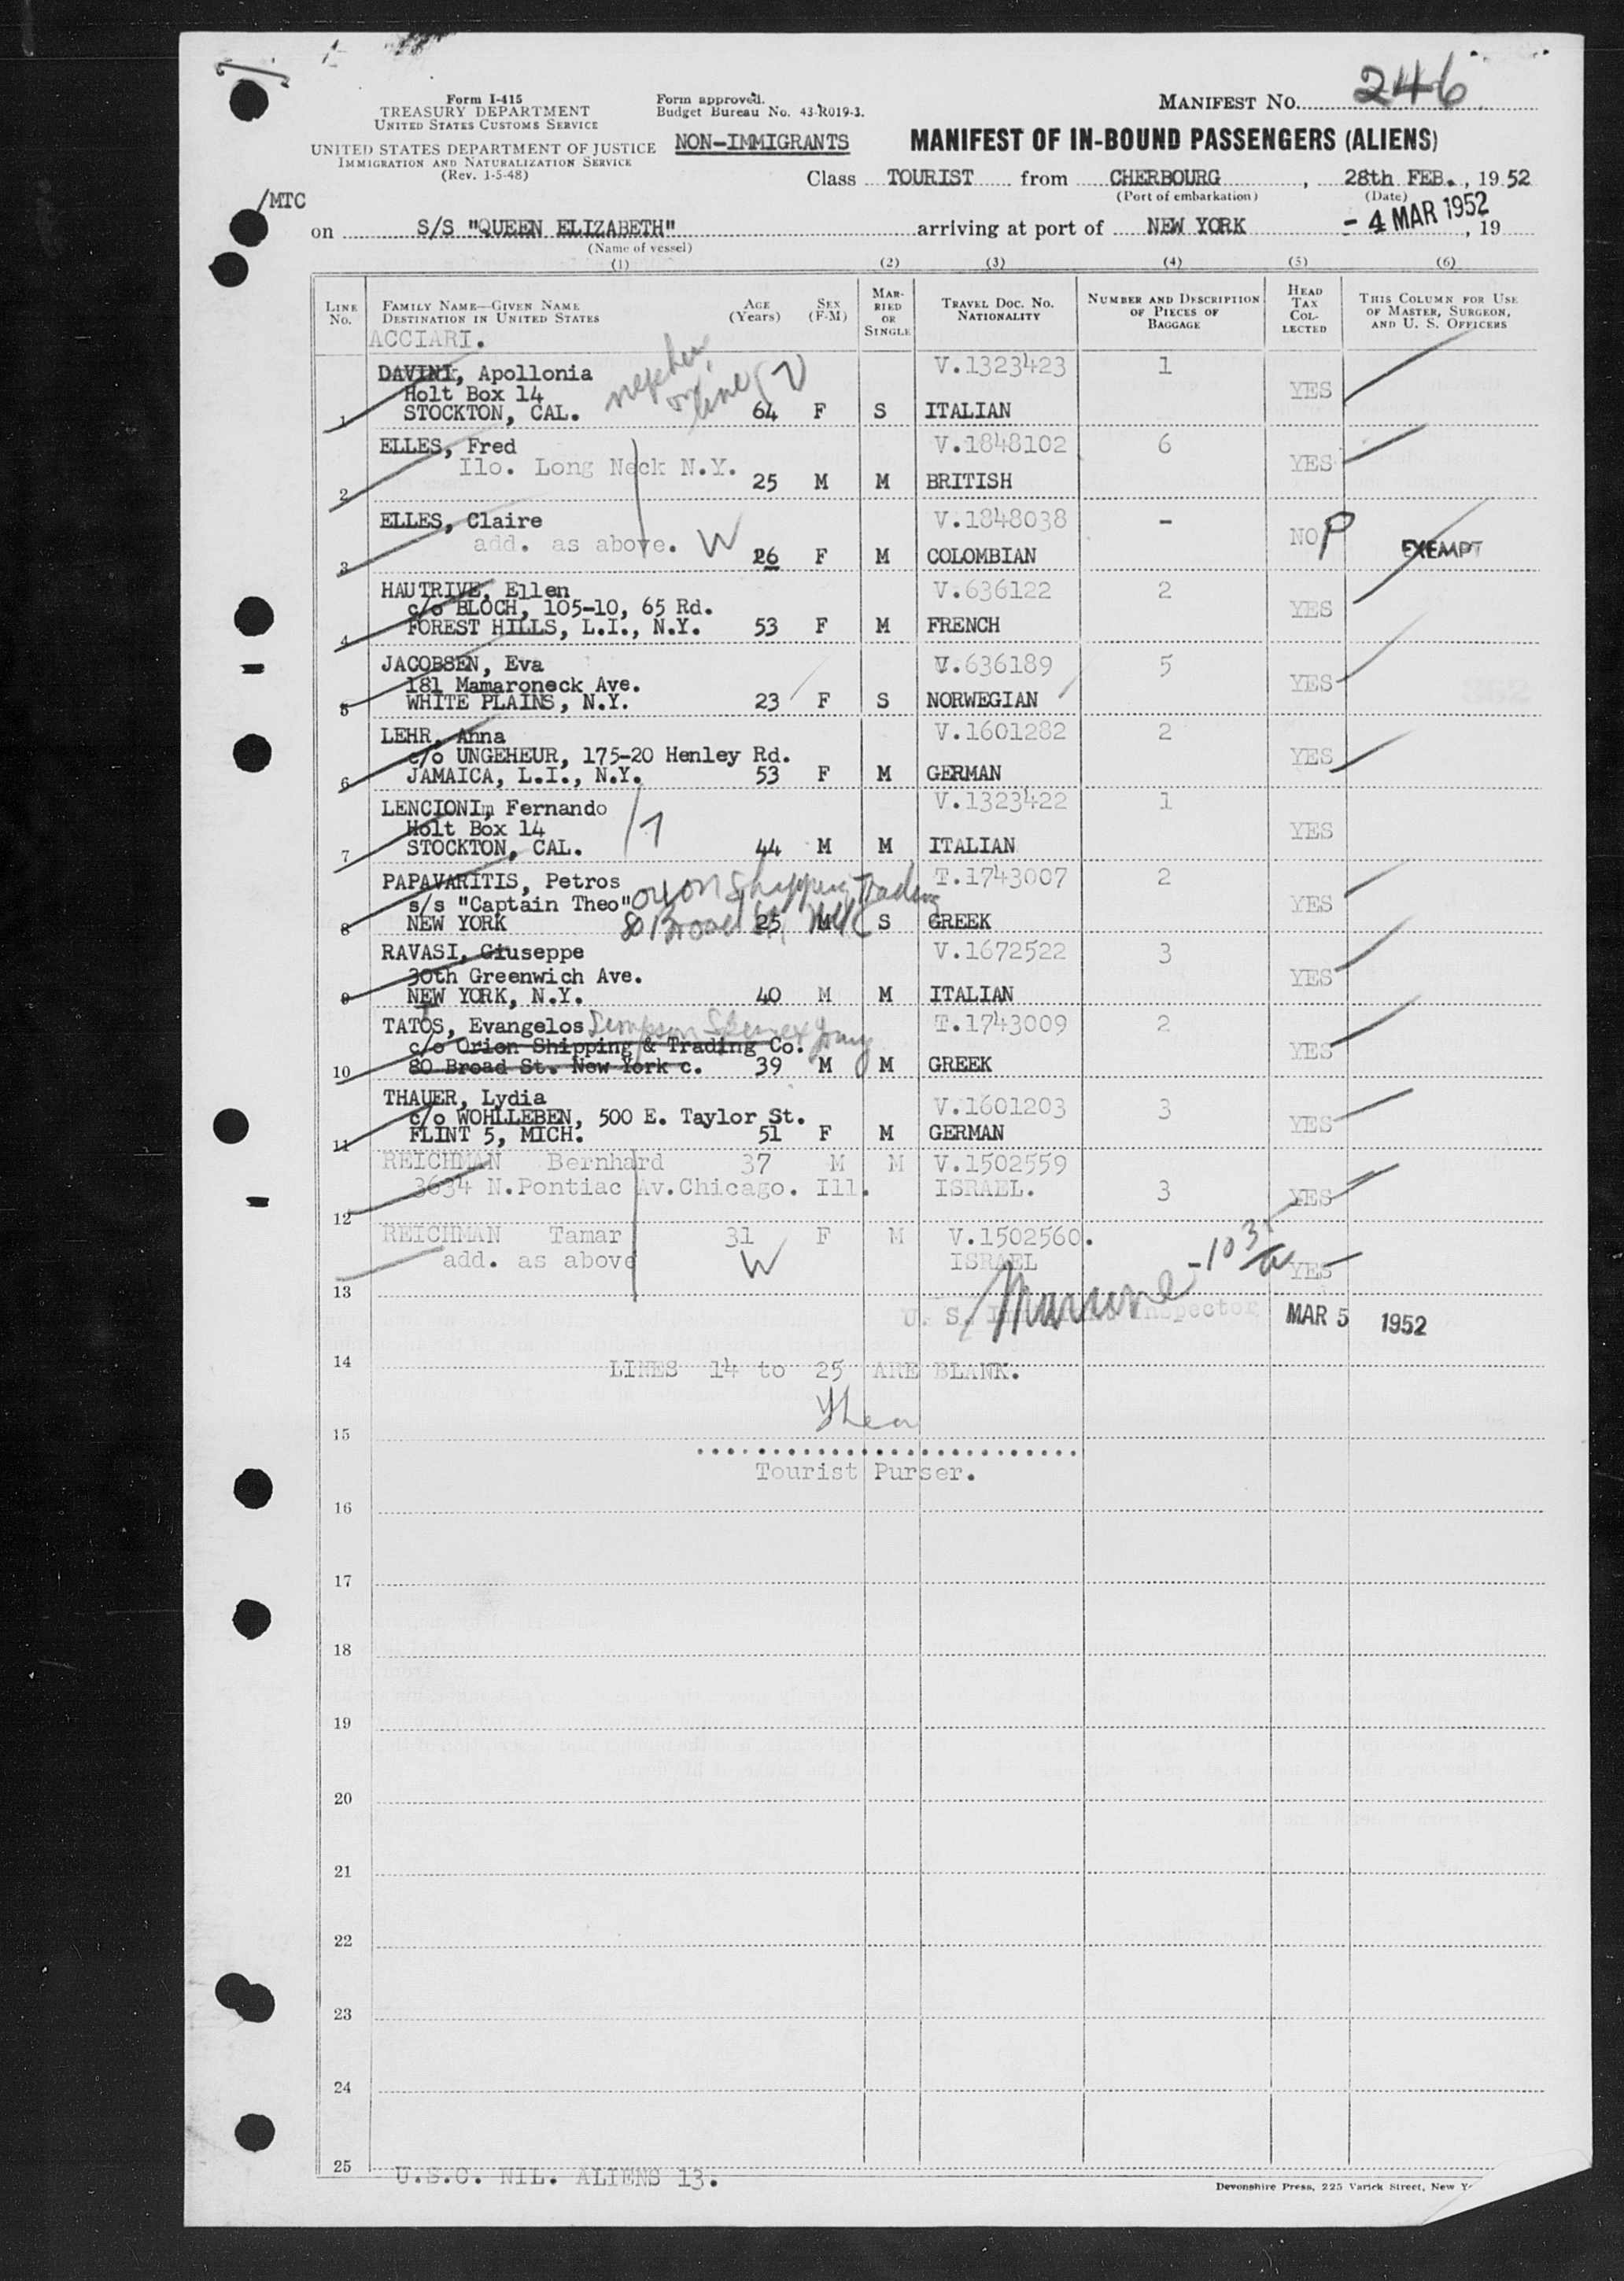 246
Form I-415
TREASURY DEPARTMENT
UNITED STATES CUSTOMS SERVICE
UNITED STATES DEPARTMENT OF JUSTICE
IMMIGRATION AND NATURALIZATION SERVICE
(Rev. 1-5-48)
Form approved.
Budget Bureau No. 43-R019-3.
NON-IMMIGRANTS
MANIFEST NO.
MANIFEST OF IN-BOUND PASSENGERS (ALIENS)
Class TOURIST from CHERBOURG, 28th FEB., 1952
(Port of embarkation) (Date)
/MTC
on S/S "QUEEN ELIZABETH" arriving at port of NEW YORK - 4 MAR 1952, 19
(Name of vessel)
(1) (2) (3) (4) (5) (6)
LINE NO. FAMILY NAME—GIVEN NAME DESTINATION IN UNITED STATES AGE (YEARS) SEX (F-M) MARRIED OR SINGLE TRAVEL DOC. NO. NATIONALITY NUMBER AND DESCRIPTION OF PIECES OF BAGGAGE HEAD TAX COLLECTED THIS COLUMN FOR USE OF MASTER, SURGEON, AND U. S. OFFICERS
ACCIARI.
DAVINI, Apollonia V.1323423 1
Holt Box 14 nephew on line 7 YES
1 STOCKTON, CAL. 64 F S ITALIAN
ELLES, Fred V.1848102 6
Ilo. Long Neck N.Y. YES
2 25 M M BRITISH
ELLES, Claire V.1848038 -
add. as above. W NO P EXEMPT
3 26 F M COLOMBIAN
HAUTRIVE, Ellen V.636122 2
c/o BLOCH, 105-10, 65 Rd. YES
4 FOREST HILLS, L.I., N.Y. 53 F M FRENCH
JACOBSEN, Eva V.636189 5
181 Mamaroneck Ave. YES
5 WHITE PLAINS, N.Y. 23 F S NORWEGIAN
LEHR, Anna V.1601282 2
c/o UNGEHEUR, 175-20 Henley Rd. YES
6 JAMAICA, L.I., N.Y. 53 F M GERMAN
LENCIONI, Fernando V.1323422 1
Holt Box 14 YES
7 STOCKTON, CAL. 44 M M ITALIAN
PAPAVARITIS, Petros Orion Shipping Trading T.1743007 2
s/s "Captain Theo" 80 Broad St, NYC YES
8 NEW YORK 25 M S GREEK
RAVASI, Giuseppe V.1672522 3
30th Greenwich Ave. YES
9 NEW YORK, N.Y. 40 M M ITALIAN
TATOS, Evangelos Simpson Spence Young T.1743009 2
c/o Orion Shipping & Trading Co. YES
10 80 Broad St. New York c. 39 M M GREEK
THAUER, Lydia V.1601203 3
c/o WOHLLEBEN, 500 E. Taylor St. YES
11 FLINT 5, MICH. 51 F M GERMAN
REICHMAN Bernhard 37 M M V.1502559
3634 N.Pontiac Av.Chicago. Ill. ISRAEL. 3 YES
12
REICHMAN Tamar 31 F M V.1502560.
add. as above W ISRAEL YES
13
U. S. Immigrant Inspector MAR 5 1952
14 LINES 14 to 25 ARE BLANK.
15
Tourist Purser.
16
17
18
19
20
21
22
23
24
25
U.S.C. NIL. ALIENS 13.
Devonshire Press, 225 Varick Street, New Y